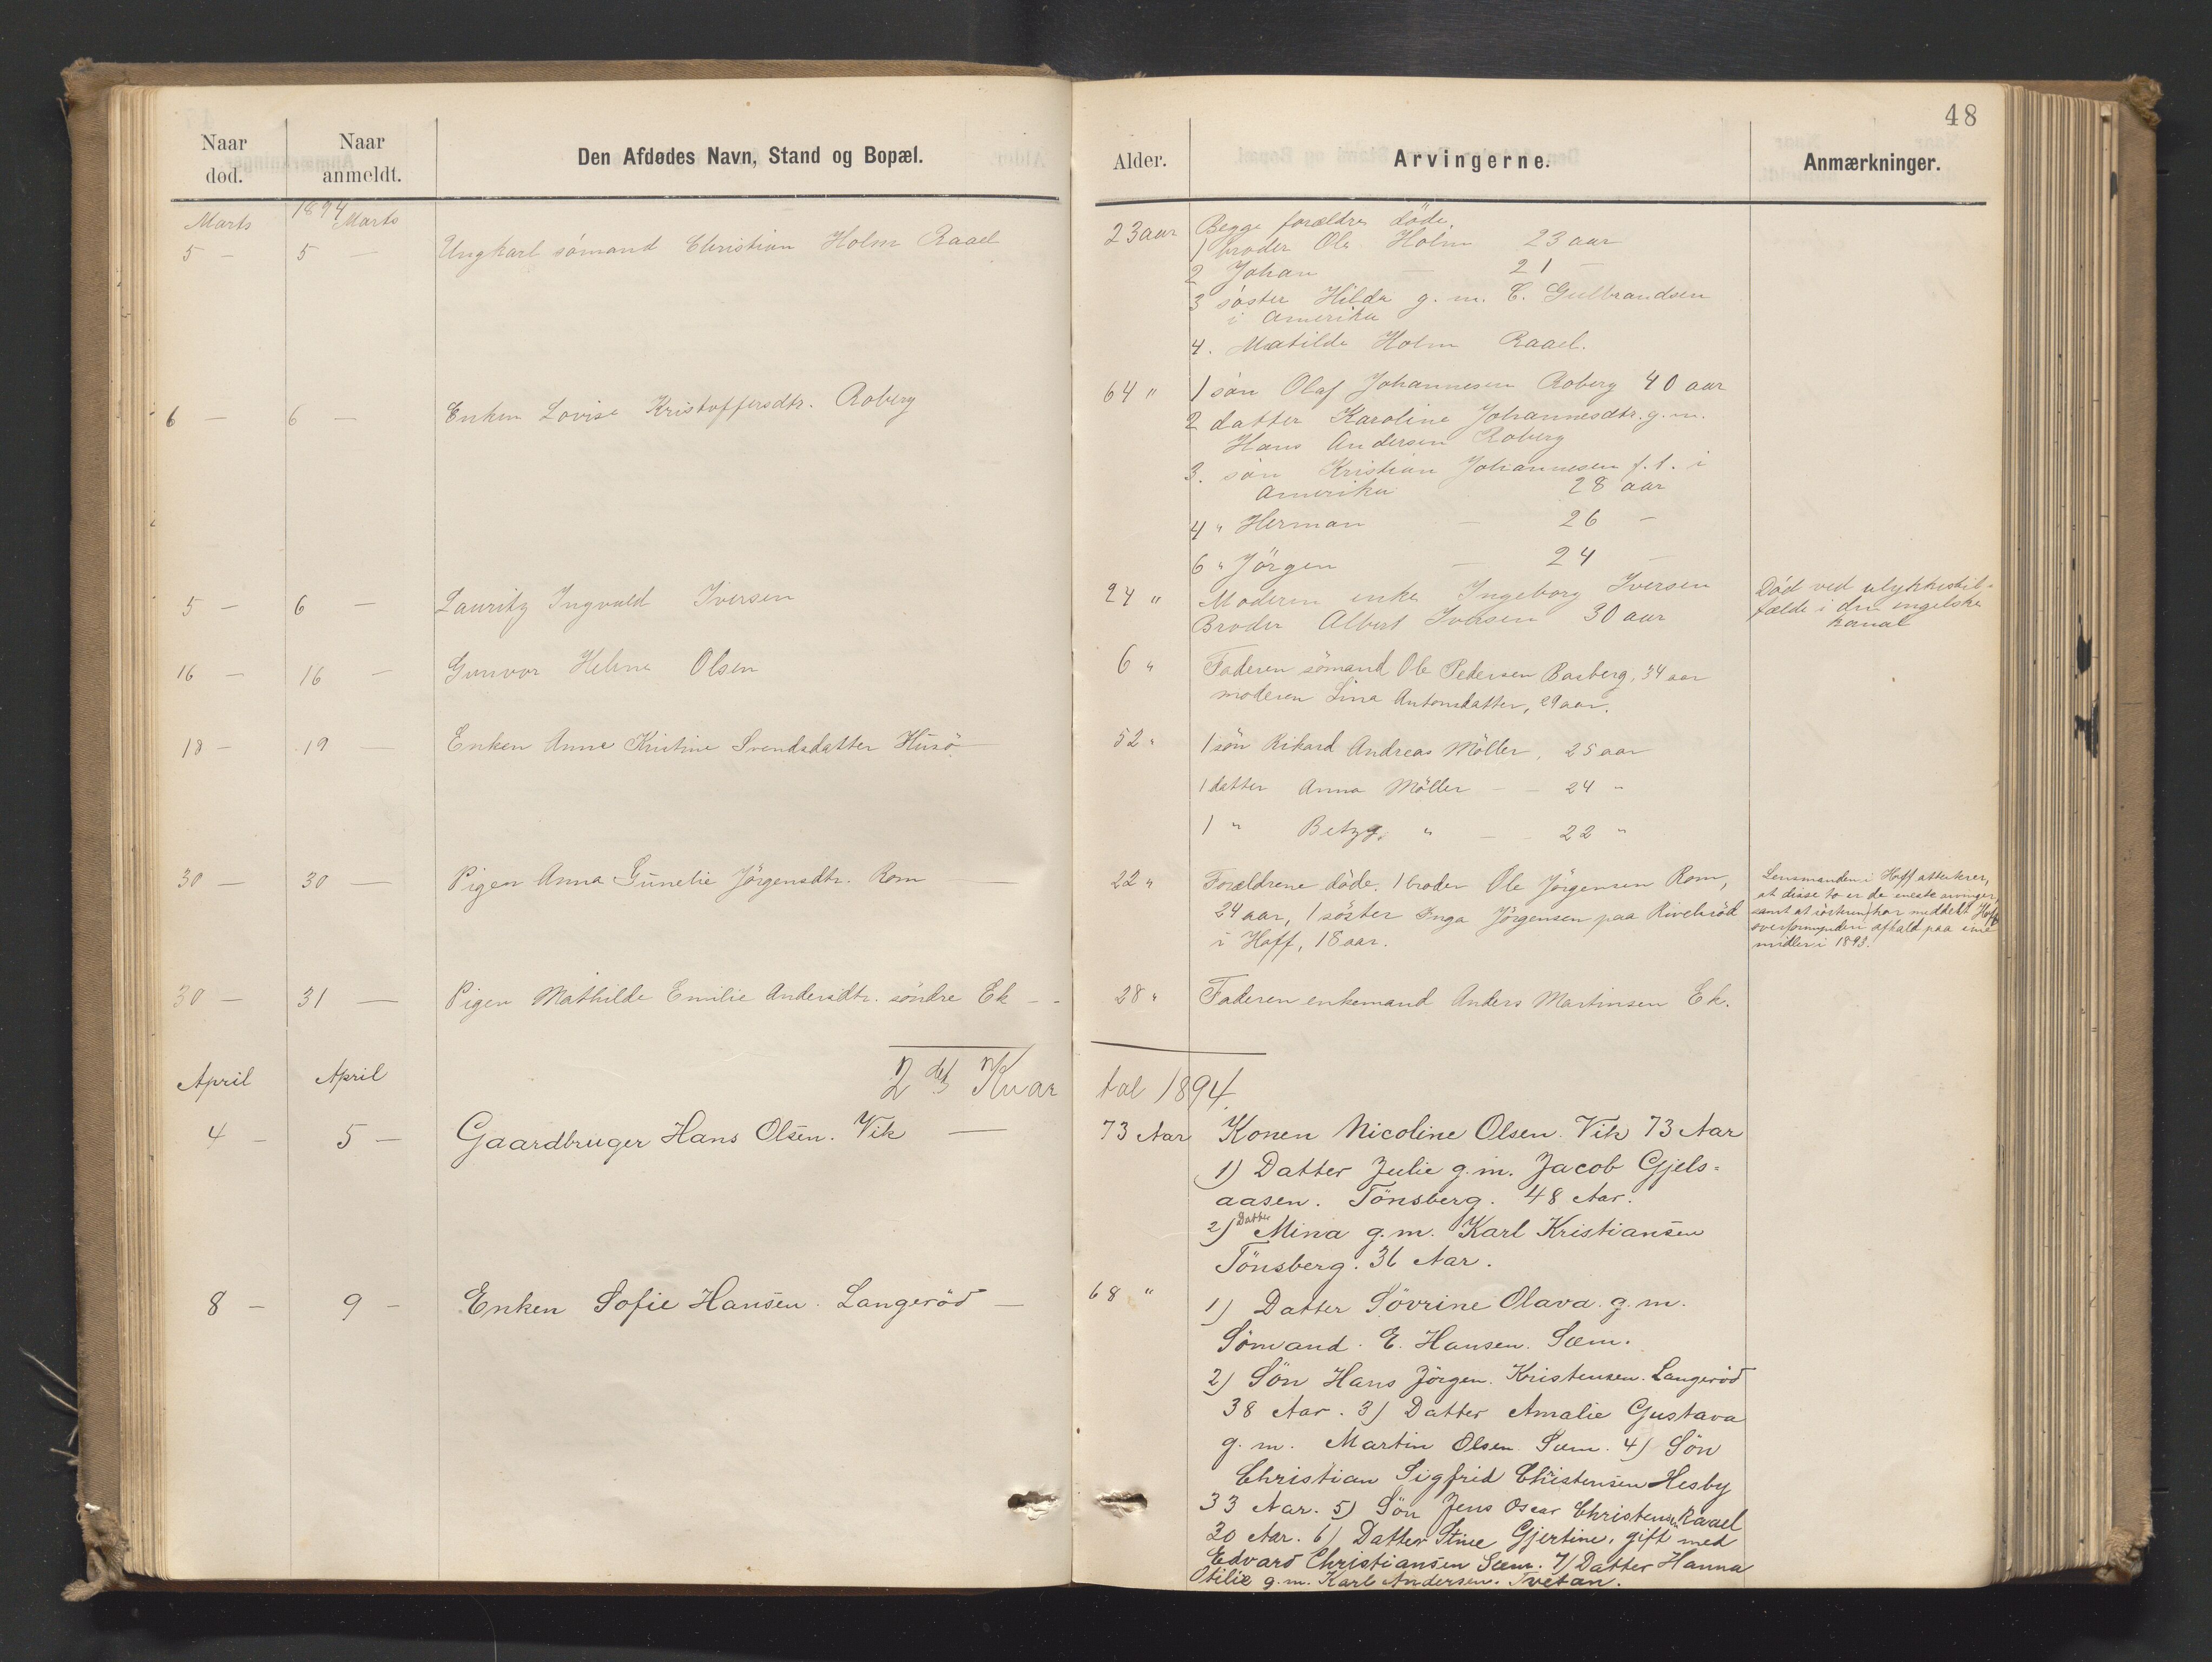 48
Naar død.
Naar anmeldt.
Den Afdødes Navn, Stand og Bopæl.
Alder.
Arvingerne.
Anmærkninger.
1894
Marts
Marts
5 — 5 — Ungkarl sömand Christian Holm Raael
23 aar
Begge forældre döde
1 broder Ole Holm 23 aar
2 Johan — 21 —
3 söster Hilda g. m. C. Gulbrandsen
i Amerika
4. Matilde Holm Raael.
6 — 6 — Enken Lovise Kristoffersdtr. Roberg
64 "
1 sön Olaf Johannesen Roberg 40 aar
2 datter Karoline Johannesdtr. g. m.
Hans Andersen Roberg
3. sön Kristian Johannesen f. t. i
Amerika 28 aar
4 " Herman — 26 —
6 " Jörgen — 24 —
5 — 6 — Lauritz Ingvald Iversen
24 "
Moderen enke Ingeborg Iversen
Broder Albert Iversen 30 aar
Död ved ulykkestil-
fælde i den engelske
kanal
16 — 16 — Gunvor Helene Olsen
6 "
Faderen sömand Ole Pedersen Basberg, 34 aar
moderen Lina Antonsdatter, 29 aar.
18 — 19 — Enken Anne Kristine Svendsdatter Husö
52 "
1 sön Rikard Andreas Möller, 25 aar
1 datter Anna Möller — — 24 "
1 " Betzy " — — 22 "
30 — 30 — Pigen Anna Gunelie Jörgensdtr. Rom —
22 "
Forældrene döde. 1 broder Ole Jörgensen Rom,
24 aar, 1 söster Inga Jörgensen paa Rivelsröd
i Hoff, 18 aar.
Lensmanden i Hoff attesterer,
at disse to er de eneste arvinger,
samt at söstren har meddelt Hoffs
overformynderi afkald paa sine
midler i 1893.
30 — 31 — Pigen Mathilde Emilie Andersdtr. söndre Ek — —
28 "
Faderen enkemand Anders Martinsen Ek.
2det Kvartal 1894.
April
April
4 — 5 — Gaardbruger Hans Olsen. Vik —
73 Aar
Konen Nicoline Olsen. Vik 73 Aar
1) Datter Julie g. m. Jacob Gjels-
aasen. Tönsberg. 48 Aar.
2) Datter Mina g. m. Karl Kristiansen
Tönsberg. 36 Aar.
8 — 9 — Enken Sofie Hansen. Langeröd —
68 "
1) Datter Sövrine Olava. g. m.
Sömand. E. Hansen. Sæm.
2) Sön Hans Jörgen. Kristensen. Langeröd
38 Aar. 3) Datter Amalie Gustava
g. m. Martin Olsen. Sæm. 4) Sön
Christian Sigfrid Christensen Hesby
33 Aar. 5) Sön Jens Oscar Christensen Raael
30 Aar. 6) Datter Stine Gjertine, gift med
Edvard Christiansen Sæm. 7) Datter Hanna
Otilie g. m. Karl Andersen. Tvetan.